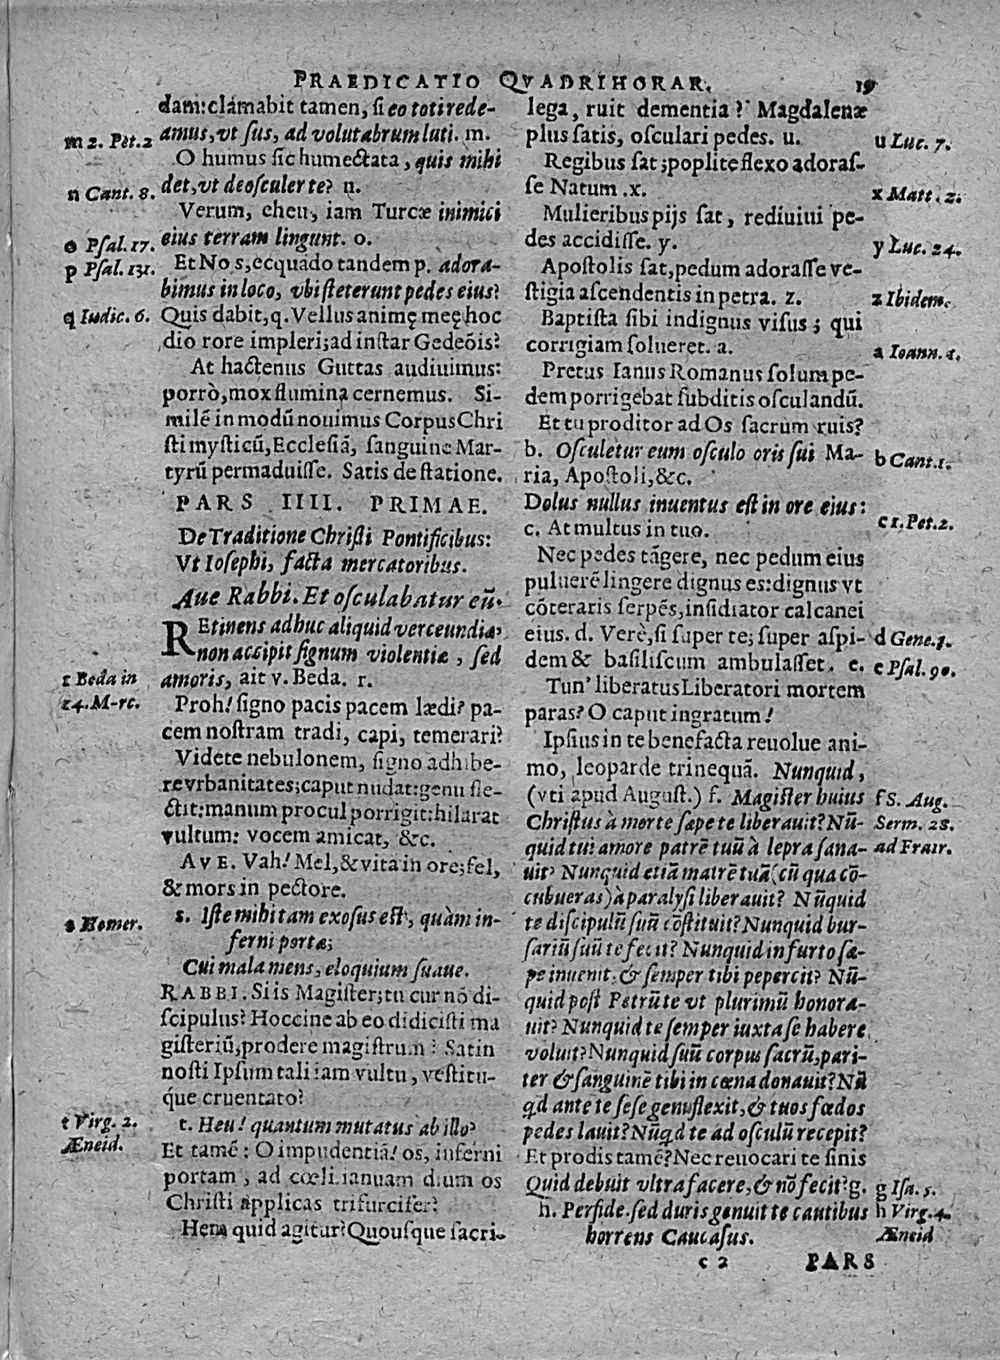 PRAEDICATIO QVADRIHORAR. 19
dam: clamabit tamen, si eo toti rede-
amus, vt sus, ad volutabrum luti. m.
m 2. Pet. 2
O humus sic humectata, quis mihi
det, vt deosculer te? n.
n Cant. 8.
Verum, eheu, iam Turcæ inimici
eius terram lingunt. o.
o Psal. 17.
Et Nos, ecquãdo tandem p. adora-
p Psal. 131.
bimus in loco, vbi steterunt pedes eius?
Quis dabit, q. Vellus animę meę hoc
q Iudic. 6.
dio rore impleri; ad instar Gedeõis?
At hactenus Guttas audiuimus:
porrò, mox flumina cernemus. Si-
milẽ in modũ nouimus Corpus Chri
sti mysticũ, Ecclesiã, sanguine Mar-
tyrũ permaduisse. Satis de statione.
PARS IIII. PRIMAE.
De Traditione Christi Pontificibus:
Vt Iosephi, facta mercatoribus.
Aue Rabbi. Et osculabatur eũ.
REtinens adhuc aliquid verecundiæ,
non accipit signum violentiæ, sed
amoris, ait v. Beda. r.
r Beda in
14. M-rc.
Proh! signo pacis pacem lædi? pa-
cem nostram tradi, capi, temerari?
Videte nebulonem, signo adhibe-
re vrbanitates; caput nudat: genu fle-
ctit: manum procul porrigit: hilarat
vultum: vocem amicat, &c.
AVE. Vah! Mel, & vita in ore; fel,
& mors in pectore.
s. Iste mihi tam exosus est, quàm in-
s Homer.
ferni portæ;
Cui mala mens, eloquium suaue.
RABBI. Si is Magister; tu cur nõ di-
scipulus? Hoccine ab eo didicisti ma
gisteriũ, prodere magistrum? Satin
nosti Ipsum tali iam vultu, vestitu-
que cruentato?
t. Heu! quantum mutatus ab illo?
t Virg. 2.
Æneid.
Et tamẽ: O impudentiã! os, inferni
portam, ad cœli ianuam dium os
Christi applicas trifurcifer?
Hem quid agitur? Quousque sacri-
lega, ruit dementia? Magdalenæ
plus satis, osculari pedes. u.
u Luc. 7.
Regibus sat; poplite flexo adoras-
se Natum. x.
x Matt. 2.
Mulieribus pijs sat, rediuiui pe-
des accidisse. y.
y Luc. 24.
Apostolis sat, pedum adorasse ve-
stigia ascendentis in petra. z.
z Ibidem.
Baptista sibi indignus visus; qui
corrigiam solueret. a.
a Ioann. 1.
Pretus Ianus Romanus solum pe-
dem porrigebat subditis osculandũ.
Et tu proditor ad Os sacrum ruis?
b. Osculetur eum osculo oris sui Ma-
b Cant. 1.
ria, Apostoli, &c.
Dolus nullus inuentus est in ore eius:
c. At multus in tuo.
c 1. Pet. 2.
Nec pedes tãgere, nec pedum eius
puluerẽ lingere dignus es: dignus vt
cõteraris serpẽs, insidiator calcanei
eius. d. Verè, si super te; super aspi-
d Gene. 3.
dem & basiliscum ambulasset. e.
e Psal. 90.
Tun' liberatus Liberatori mortem
paras? O caput ingratum!
Ipsius in te benefacta reuolue ani-
mo, leoparde trinequã. Nunquid,
(vti apud August.) f. Magister huius
f S. Aug.
Christus à morte sæpe te liberauit? Nũ-
Serm. 28.
quid tui amore patrẽ tuũ à lepra sana-
ad Fratr.
uit? Nunquid etiã matrẽ tuã (cũ qua cõ-
cubueras) à paralysi liberauit? Nũquid
te discipulũ suũ cõstituit? Nunquid bur-
sariũ suũ te fecit? Nunquid in furto sæ-
pe inuenit, & semper tibi pepercit? Nũ-
quid post Petrũ te vt plurimũ honora-
uit? Nunquid te semper iuxta se habere
voluit? Nunquid suũ corpus sacrũ, pari-
ter & sanguinẽ tibi in cœna donauit? Nũ
qd ante te sese genuflexit, & tuos fœdos
pedes lauit? Nũqd te ad osculũ recepit?
Et prodis tamẽ? Nec reuocari te sinis
Quid debuit vltra facere, & nõ fecit? g.
g Isa. 5.
h. Perfide. sed duris genuit te cautibus
h Virg. 4.
horrens Caucasus.
Æneid
c 2 PARS